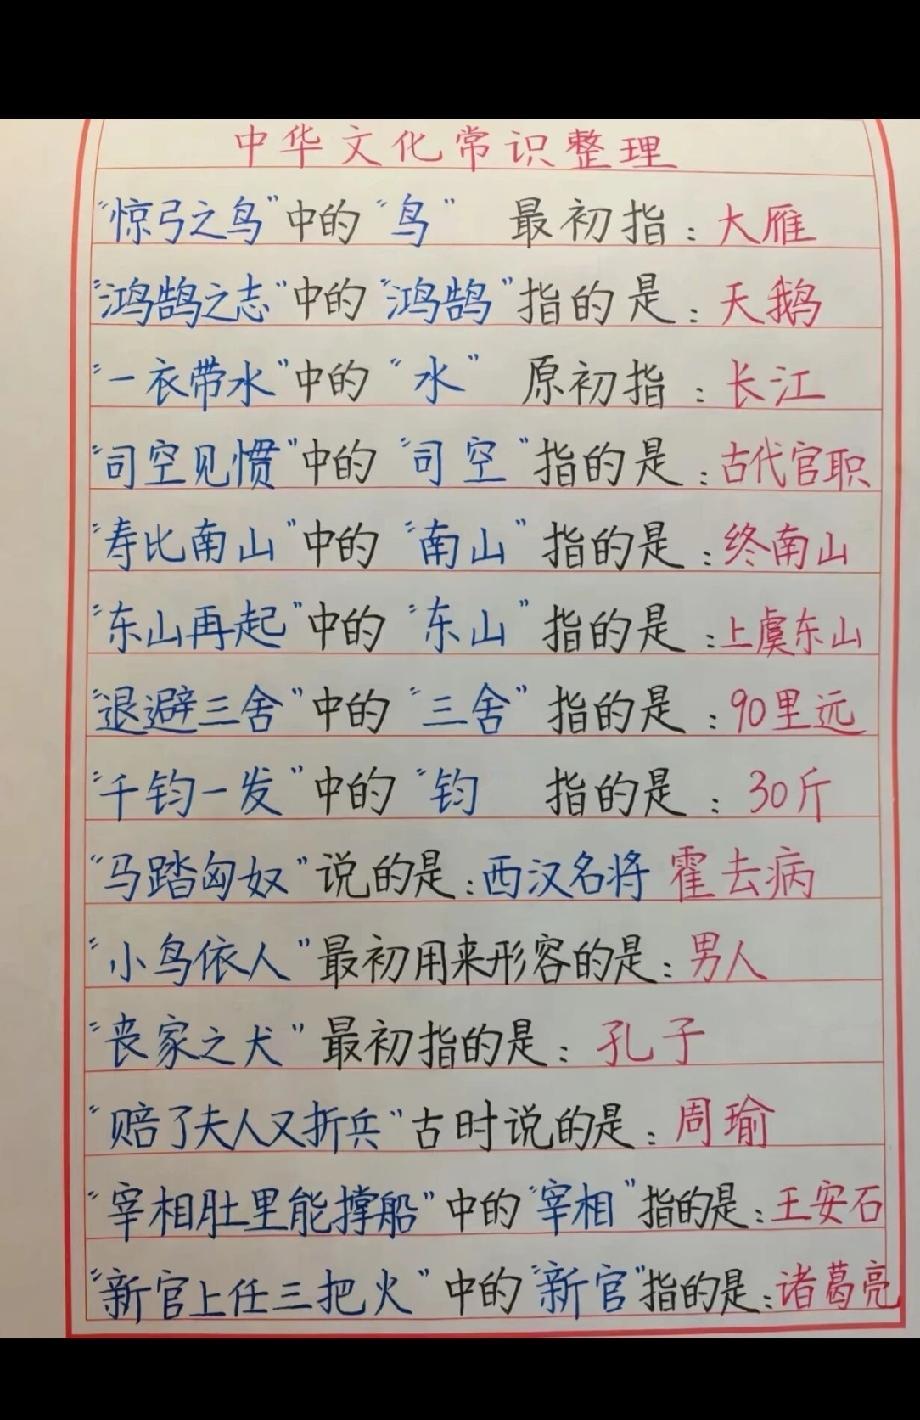 中华文化常识整理
“惊弓之鸟”中的“鸟” 最初指：大雁
“鸿鹄之志”中的“鸿鹄”指的是：天鹅
“一衣带水”中的“水” 原初指：长江
“司空见惯”中的“司空”指的是：古代官职
“寿比南山”中的“南山”指的是：终南山
“东山再起”中的“东山”指的是：上虞东山
“退避三舍”中的“三舍”指的是：90里远
“千钧一发”中的“钧 指的是：30斤
“马踏匈奴”说的是：西汉名将霍去病
“小鸟依人”最初用来形容的是：男人
“丧家之犬”最初指的是：孔子
“赔了夫人又折兵”古时说的是：周瑜
“宰相肚里能撑船”中的“宰相”指的是：王安石
“新官上任三把火”中的“新官”指的是：诸葛亮